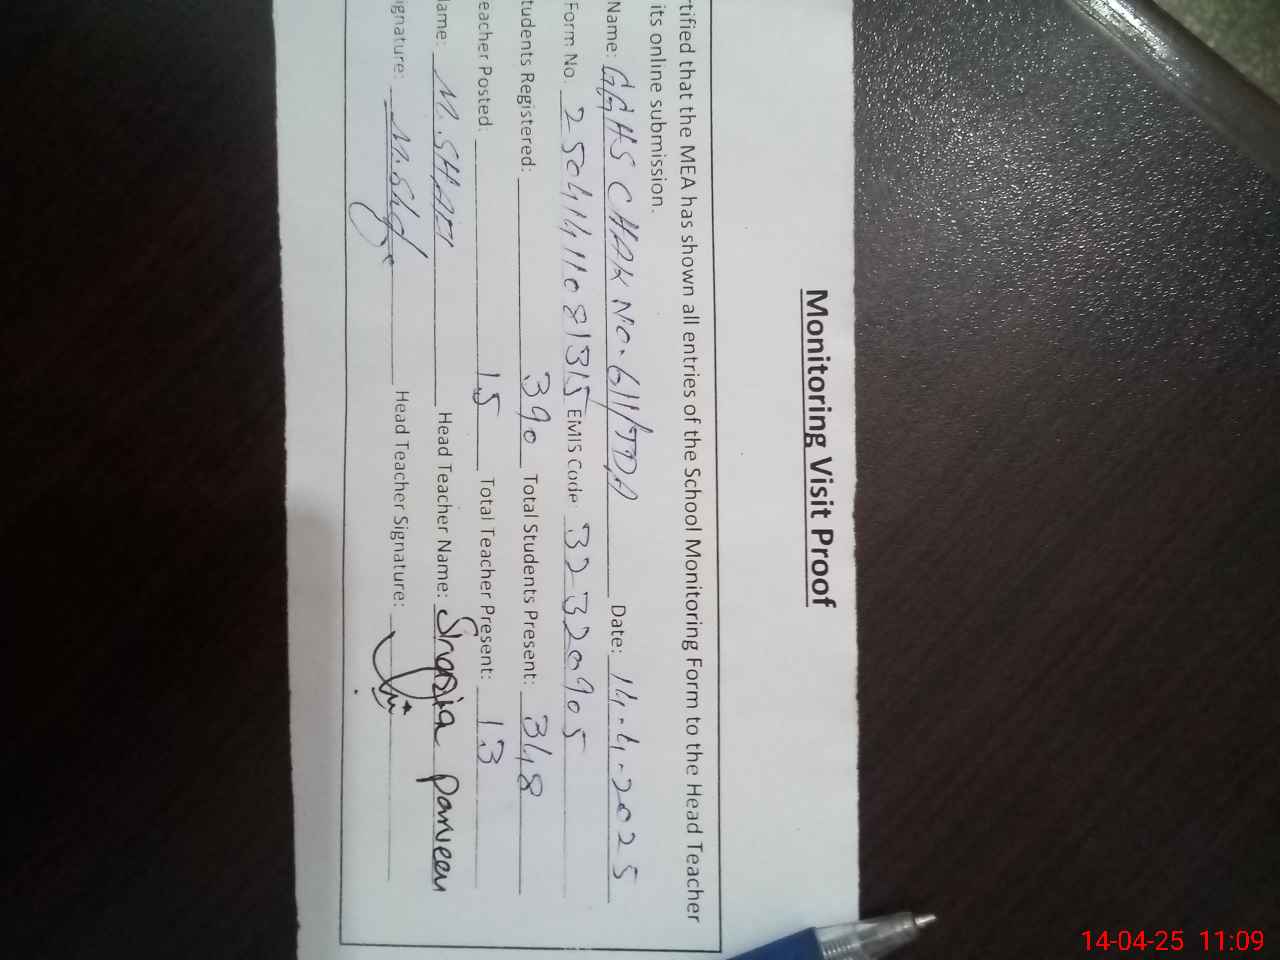 Monitoring Visit Proof
rtified that the MEA has shown all entries of the School Monitoring Form to the Head Teacher
its online submission.
Name: GGHS CHAK NO. 611/TDA Date: 14.4.2025
Form No. 25041411081315 EMIS Code: 32320905
tudents Registered: 390 Total Students Present: 348
eacher Posted: 15 Total Teacher Present: 13
lame: M. SHAFI Head Teacher Name: Parveen
ignature: M. Head Teacher Signature:
14-04-25 11:09